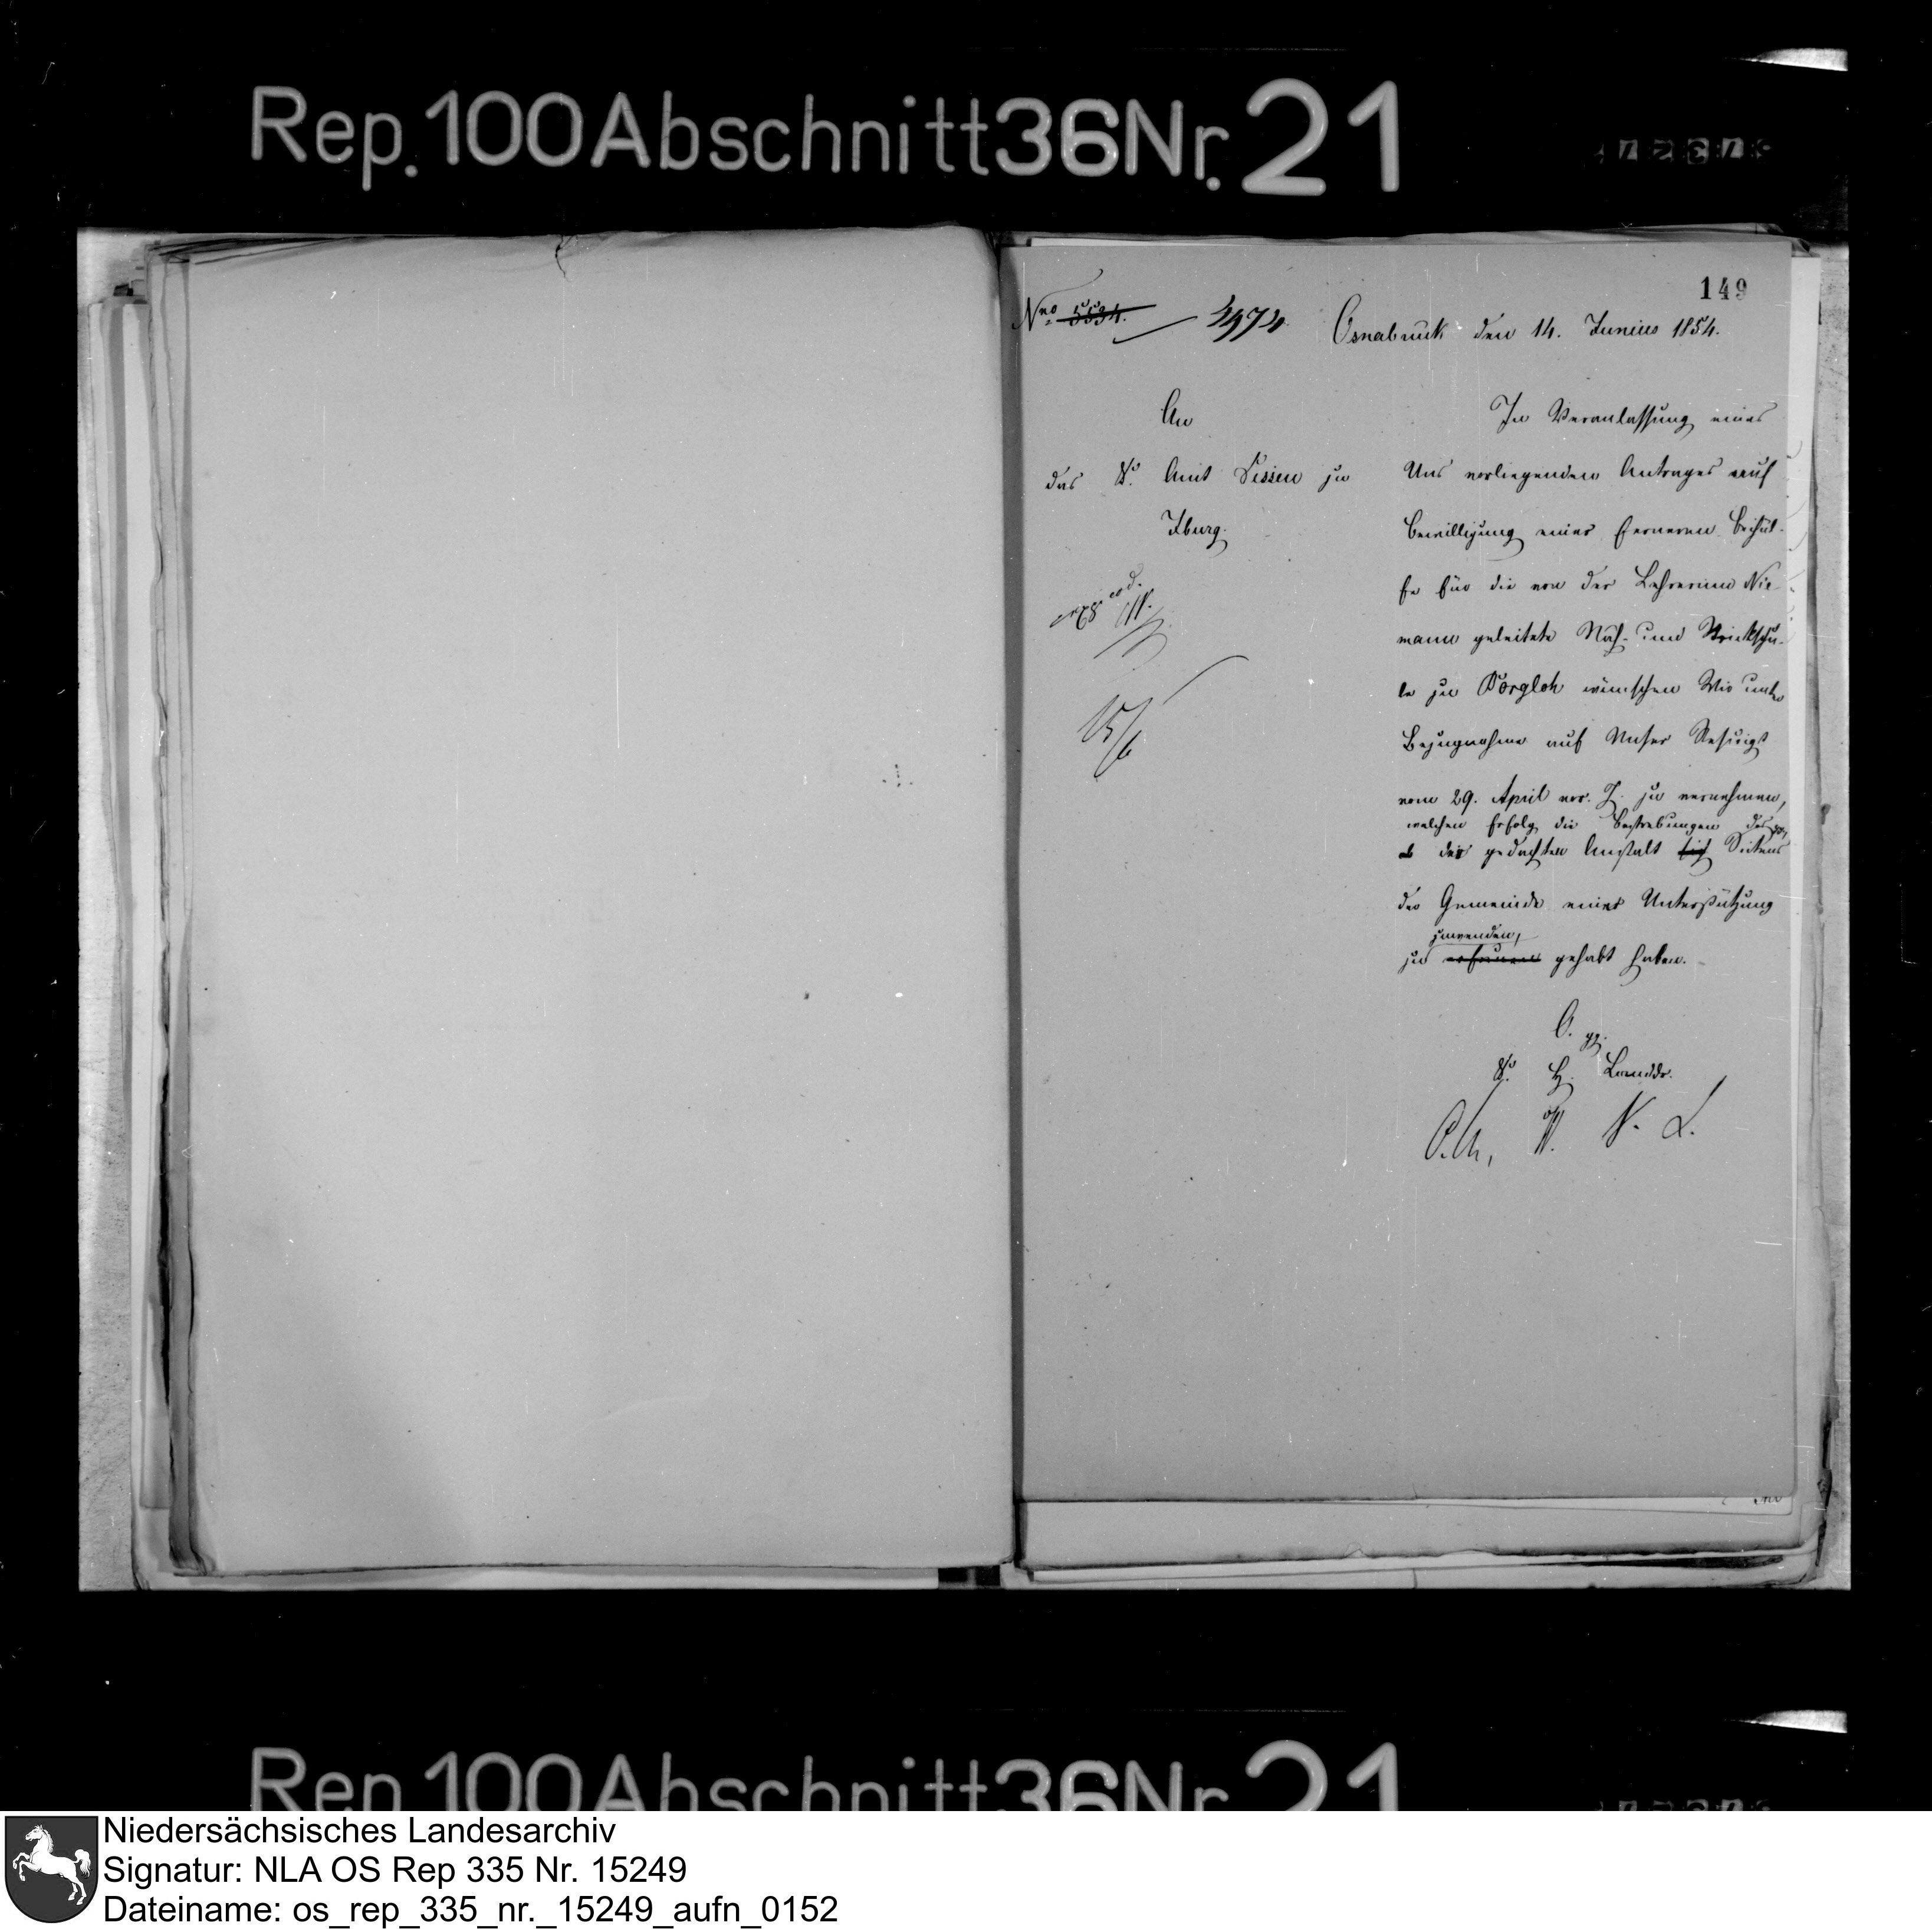 Rep. 100 Abschnitt 36 Nr. 21
149
Nro 5534. 4974
Osnabruck den 14. Junius 1854.
An
das K. Amt zu
Iburg.
exp. eod.
15/6
In Veranlassung eines
Uns vorliegenden Antrages auf
Bewilligung einer ferneren Beihül-
fe für die von der Lehrerinn Nie-
mann geleitete Näh- und Strickschu-
le zu Borgloh wünschen Wir unter
Bezugnahme auf Unser Rescript
vom 29. April vor. J. zu vernehmen,
welchen Erfolg die Bestrebungen
der gedachten Anstalt sich Seitens
der Gemeinde eine Unterstützung
zuwenden,
zu gehabt haben.
O.
K. H. Landdr.
N. L.
Rep. 100 Abschnitt 36 Nr. 21
Niedersächsisches Landesarchiv
Signatur: NLA OS Rep 335 Nr. 15249
Dateiname: os_rep_335_nr._15249_aufn_0152